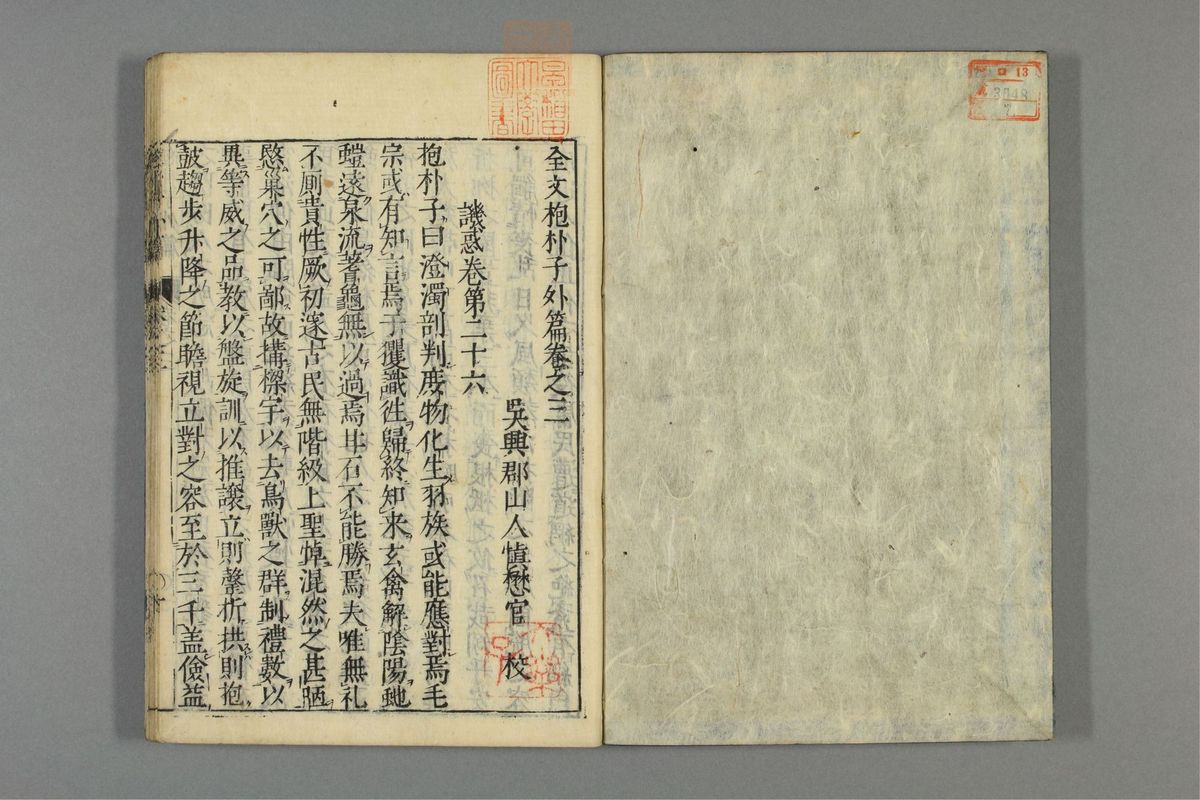 全文抱朴子外篇卷之三
吳興郡山人慎懋官校
譏惑卷第二十六
抱朴子曰澄濁剖判庶物化生羽族或能應對焉毛
宗或有知言焉于玃識徃歸終知来玄禽解陰陽虵
螘遠泉流蓍龜無以過焉甘石不能勝焉夫唯無礼
不厠貴性厥初邃古民無階級上聖悼混然之甚陋
愍巢穴之可鄙故構櫟宇以去鳥獸之群制禮數以
異等威之品教以盤旋訓以推讓立則磬折拱則抱
鼓趨步升降之節瞻視立對之容至於三千盖儉益
ロ 13
3048
7